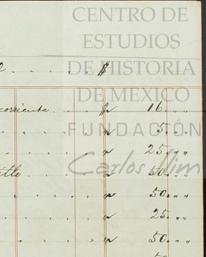 CENTRO DE
ESTUDIOS
DE HISTORIA
DE MEXICO
FUNDACIÓN
Carlos Slim
$
corriente . . $ 16. „ „
„ 5. „ „
„ 25. „ „
„ 50. „ „
„ 50. „ „
„ 25. „ „
„ 50. „ „